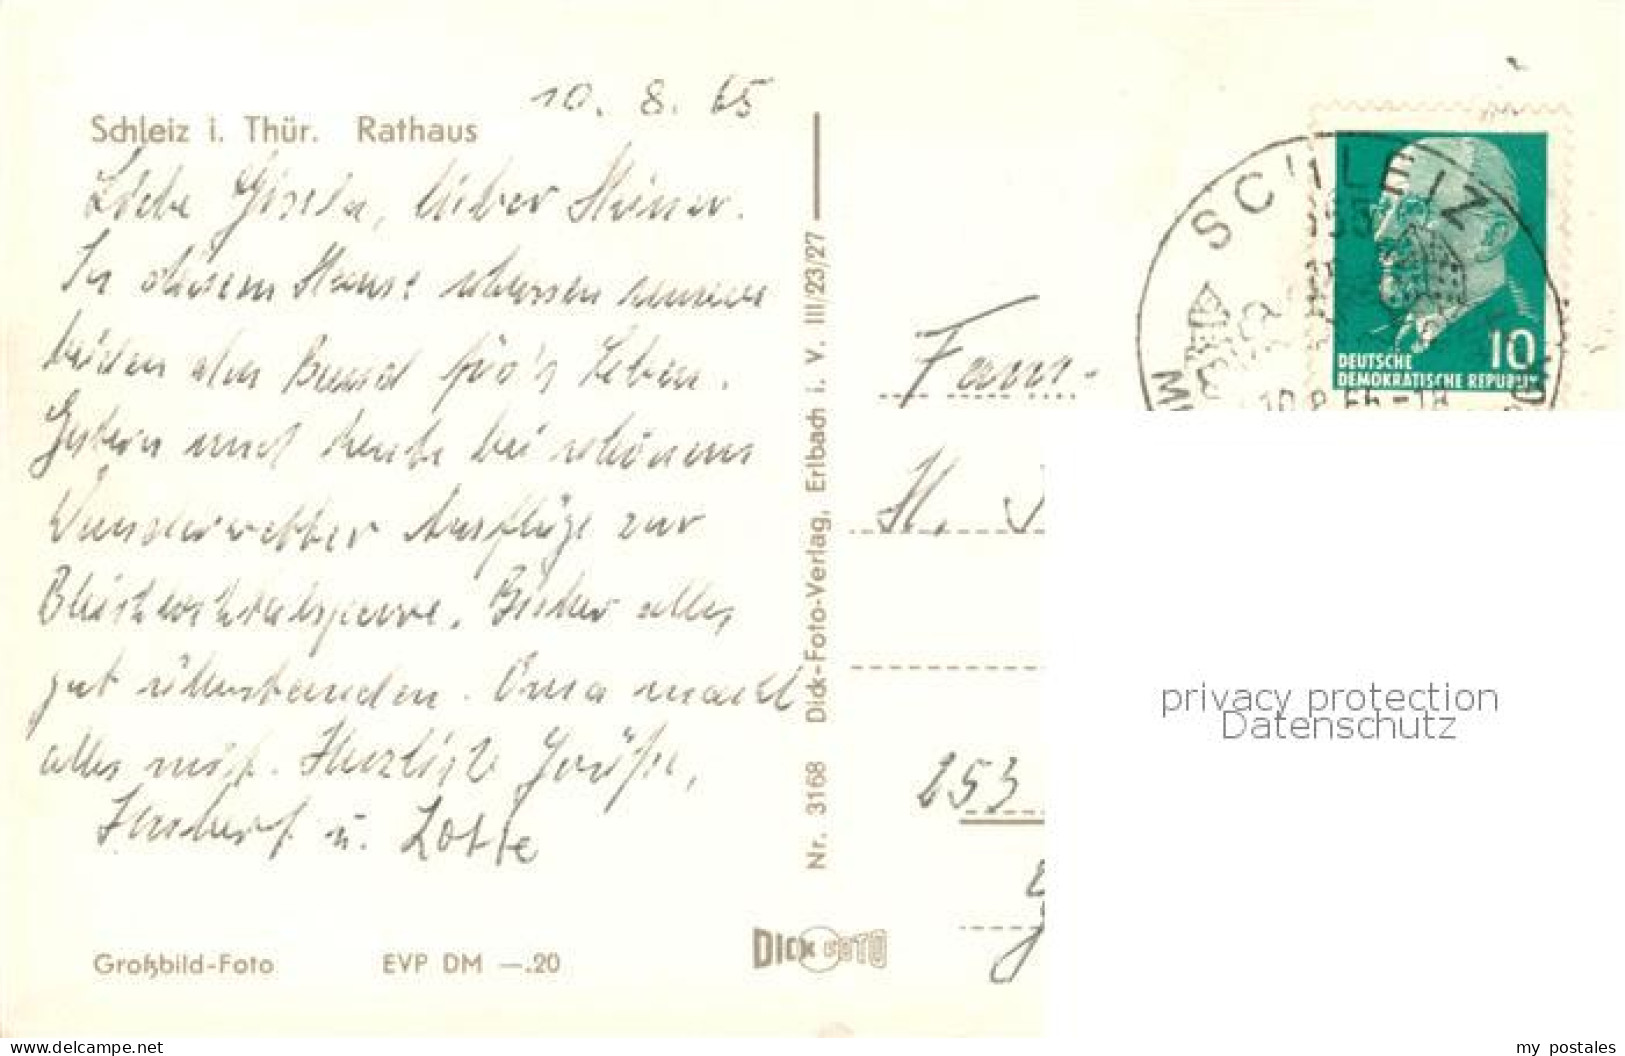 10. 8. 65
Schleiz i. Thür. Rathaus
Liebe Gisela, lieber Heiner.
In diesem Hause schlossen unsere
beiden den Bund für's Leben.
Gestern und heute bei schönem
Wunderwetter Ausflüge zur
Bleilochtalsperre. Bisher alles
gut überstanden. Oma macht
alles mit. Herzliche Grüße,
Herbert u. Lotte
Großbild-Foto EVP DM —.20
Nr. 3168 Dick-Foto-Verlag, Erlbach i. V. III/23/27
DICK FOTO
SCHLEIZ
10
DEUTSCHE
DEMOKRATISCHE REPUBLIK
10.8.65-18
Fam.
H.
253
privacy protection
Datenschutz
www.delcampe.net
my_postales